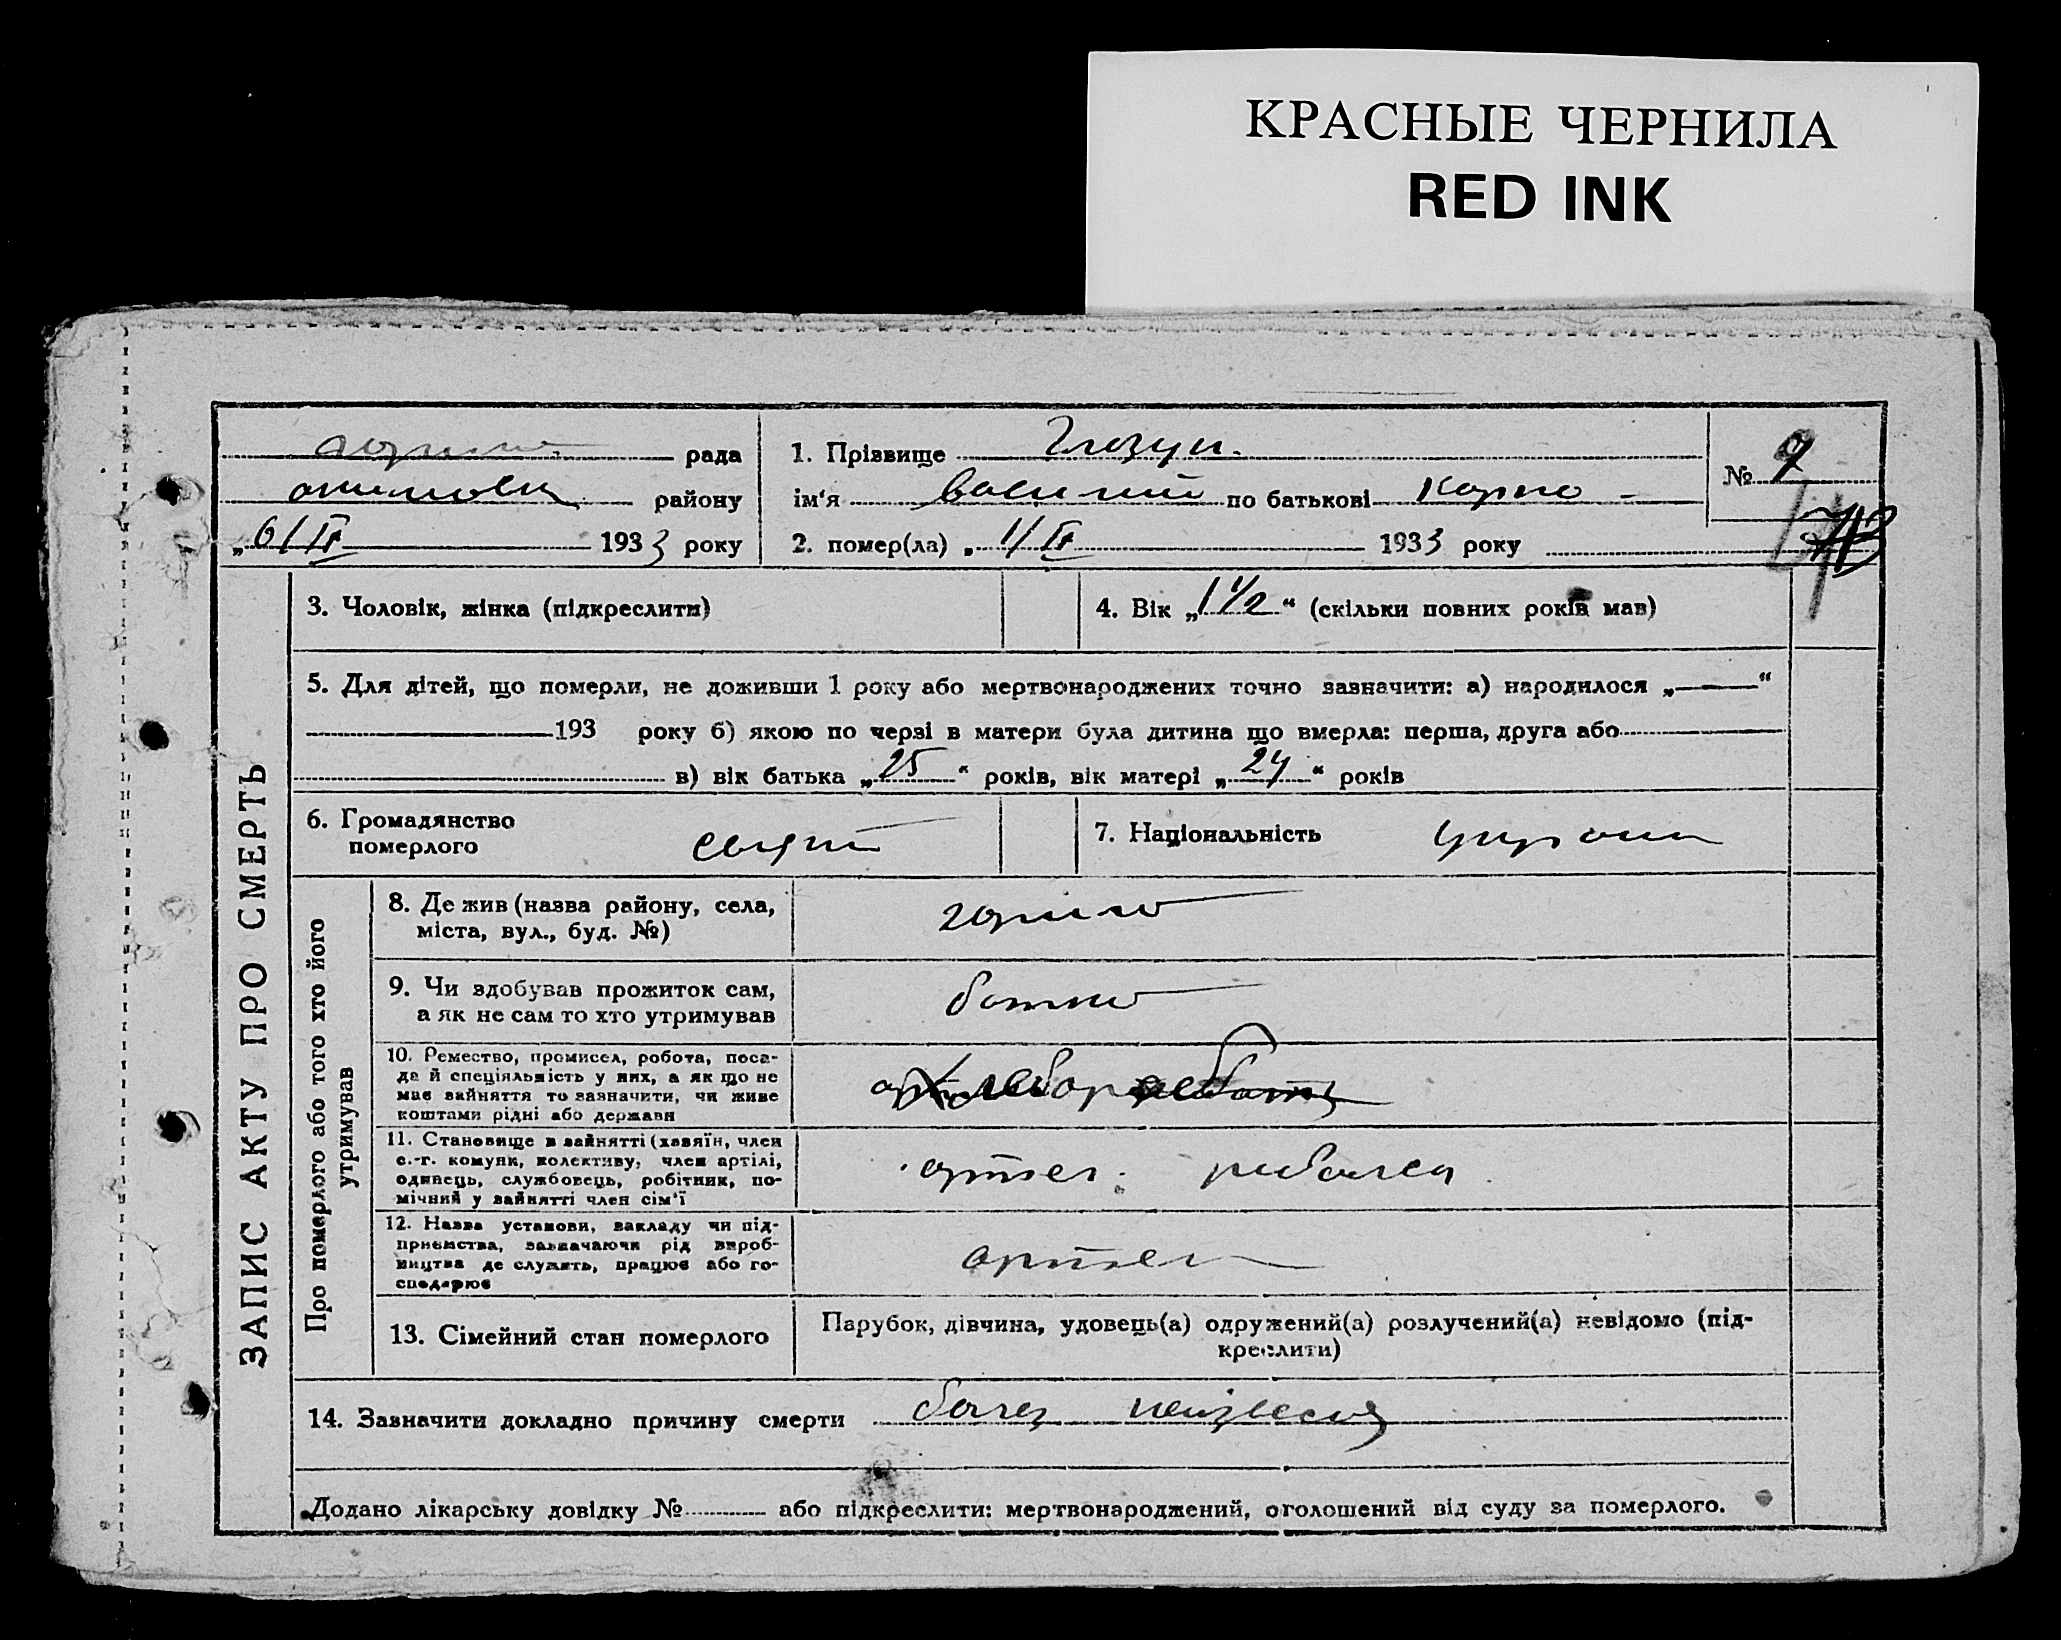 КРАСНЫЕ ЧЕРНИЛА
RED INK
рада
району
„ 6/IV 1933 року
1. Прізвище Глозун.
ім'я василий по батькові Карпо -
2. помер(ла) „ 4/IV 1933 року
№ 9
3. Чоловік, жінка (підкреслити)
4. Вік „1 1/2“ (скільки повних років мав)
5. Для дітей, що померли, не доживши 1 року або мертвонароджених точно зазначити: а) народилося „—“
193 року б) якою по черзі в матери була дитина що вмерла: перша, друга або
в) вік батька „25“ років, вік матері „24“ років
6. Громадянство
померлого
7. Національність
ЗАПИС АКТУ ПРО СМЕРТЬ
Про померлого або того хто його
утримував
8. Де жив (назва району, села,
міста, вул., буд. №)
9. Чи здобував прожиток сам,
а як не сам то хто утримував
батько
10. Ремество, промисел, робота, поса-
да й спеціяльність у них, а як що не
має зайняття то зазначити, чи живе
коштами рідні або держави
11. Становище в зайнятті (хазяїн, член
с.-г. комуни, колективу, член артілі,
одинець, службовець, робітник, по-
мічний у зайнятті член сім'ї
артел.
12. Назва установи, закладу чи під-
приємства, зазначаючи рід вироб-
ництва де служить, працює або го-
сподарює
артел
13. Сімейний стан померлого
Парубок, дівчина, удовець(а) одружений(а) розлучений(а) невідомо (під-
креслити)
14. Зазначити докладно причину смерти болез неизвесна
Додано лікарську довідку № або підкреслити: мертвонароджений, оголошений від суду за померлого.